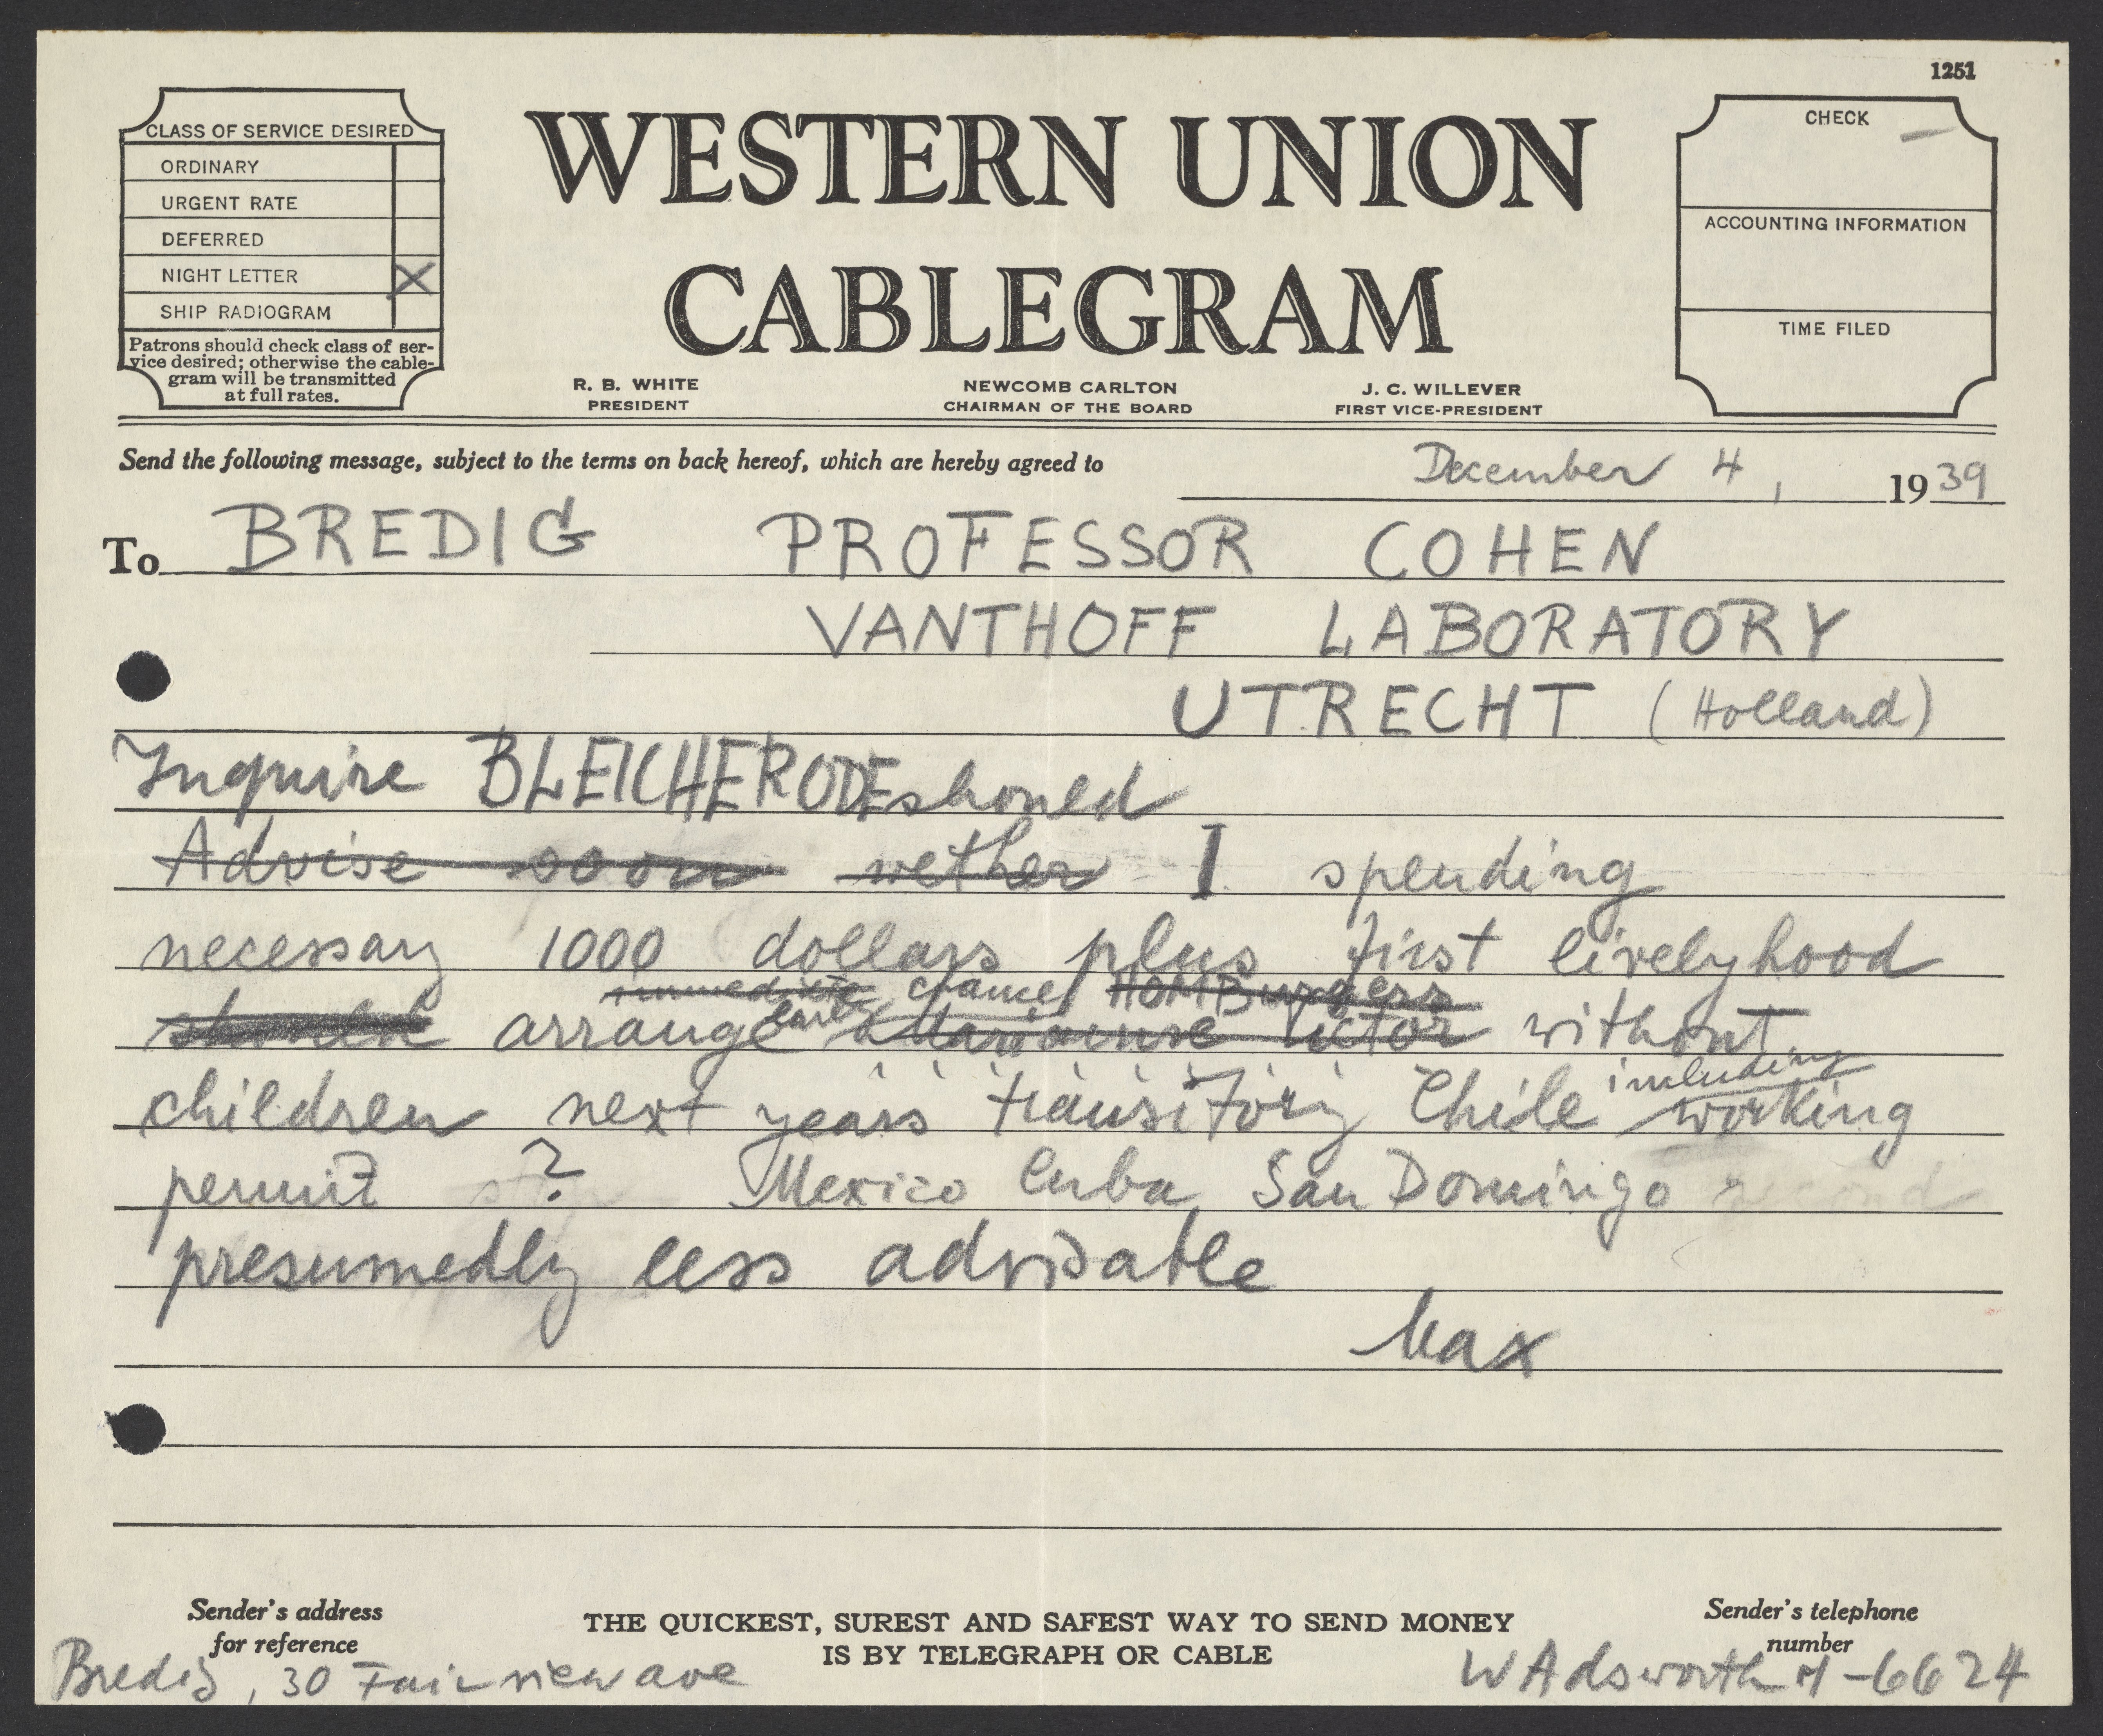 1251
CLASS OF SERVICE DESIRED
ORDINARY
URGENT RATE
DEFERRED
NIGHT LETTER X
SHIP RADIOGRAM
Patrons should check class of ser-
vice desired; otherwise the cable-
gram will be transmitted
at full rates.
WESTERN UNION
CABLEGRAM
R. B. WHITE
PRESIDENT
NEWCOMB CARLTON
CHAIRMAN OF THE BOARD
J. C. WILLEVER
FIRST VICE-PRESIDENT
CHECK
ACCOUNTING INFORMATION
TIME FILED
Send the following message, subject to the terms on back hereof, which are hereby agreed to
December 4, 1939
To BREDIG PROFESSOR COHEN
VANTHOFF LABORATORY
UTRECHT (Holland)
Inquire BLEICHERODE should
Advise soon wether I spending
necessary 1000 dollars plus first livelyhood
immediate chance HOMBurgers
should arrange without
including
children next years transitory Chile working
permit ? Mexico Cuba San Domingo
presumedly less advisable
Max
Sender's address
for reference
THE QUICKEST, SUREST AND SAFEST WAY TO SEND MONEY
IS BY TELEGRAPH OR CABLE
Sender's telephone
number
Bredig, 30 Fairview ave
WAdsworth -6624